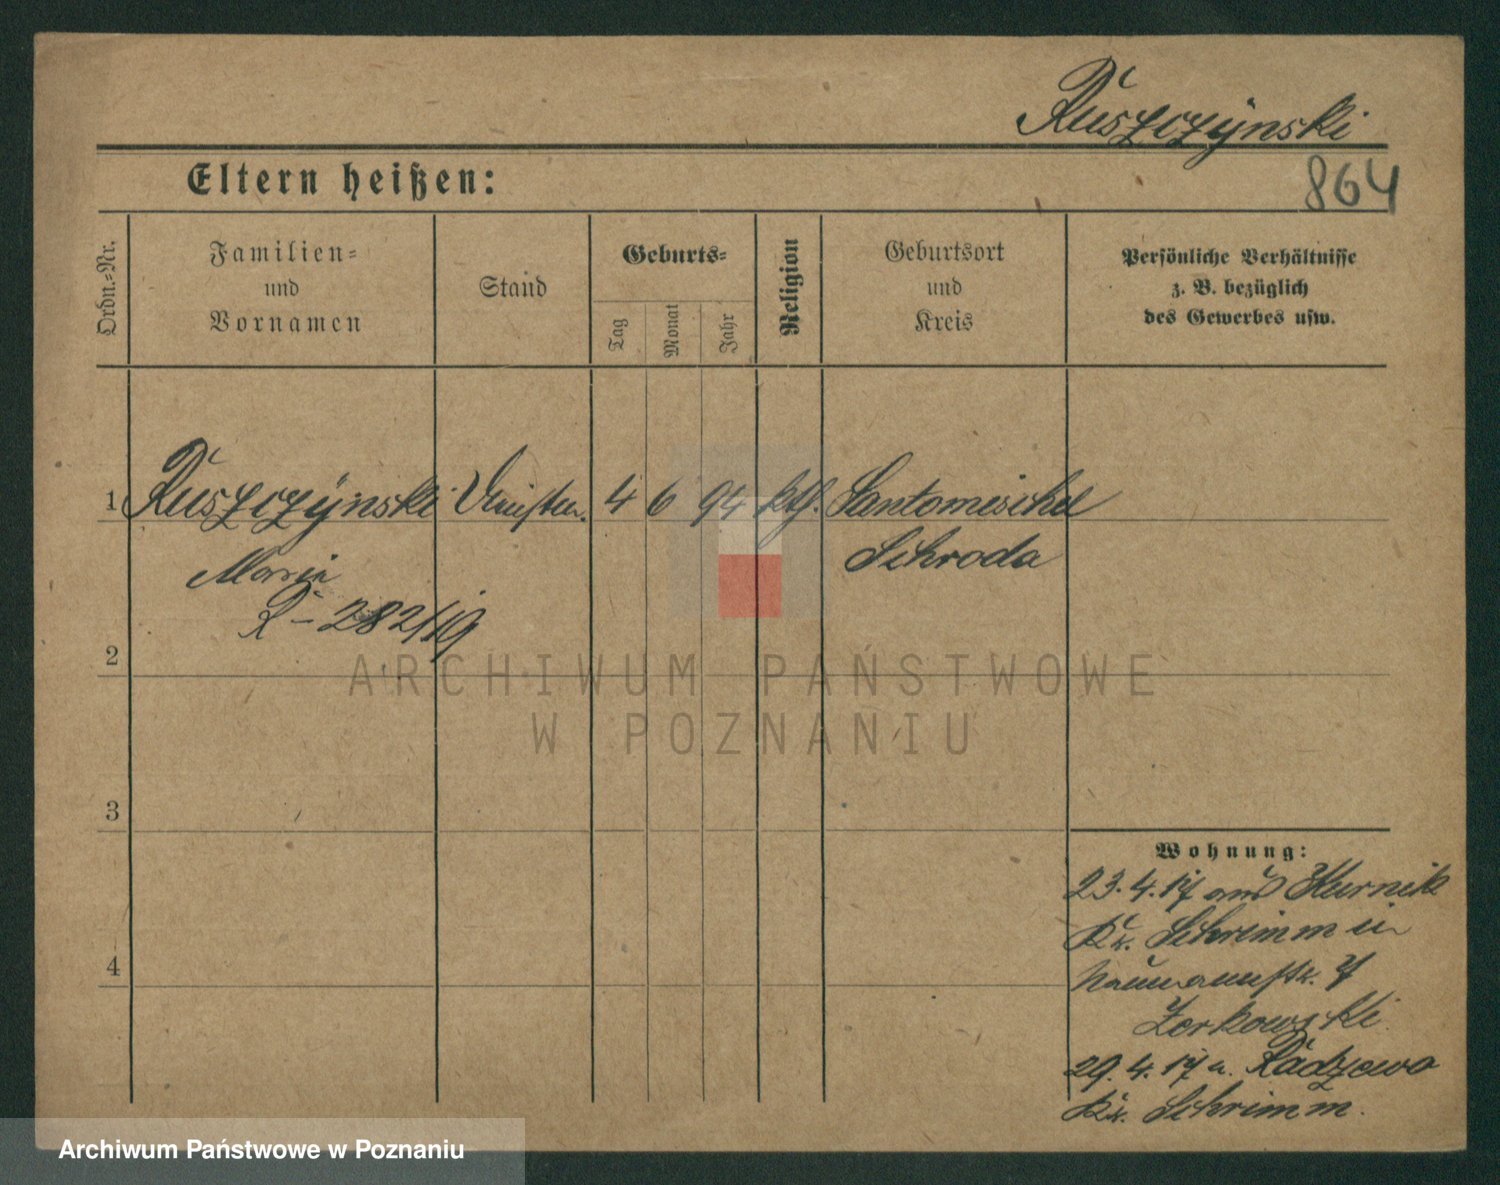 Ruszczynski
864
Eltern heißen:
Ordn.-Nr.
Familien-
und
Vornamen
Stand
Geburts-
Tag
Monat
Jahr
Religion
Geburtsort
und
Kreis
Persönliche Verhältnisse
z. B. bezüglich
des Gewerbes usw.
1 Ruszczynski 4 6 94 kth. Santomischel
Maria Schroda
R - 282/19
2
3
4
Wohnung:
23.4.17 aus Kurnik
Kr. Schrimm in
Naumannstr. 7
Zorkowski
29.4.17 n. Radzewo
Kr. Schrimm.
ARCHIWUM PAŃSTWOWE
W POZNANIU
Archiwum Państwowe w Poznaniu